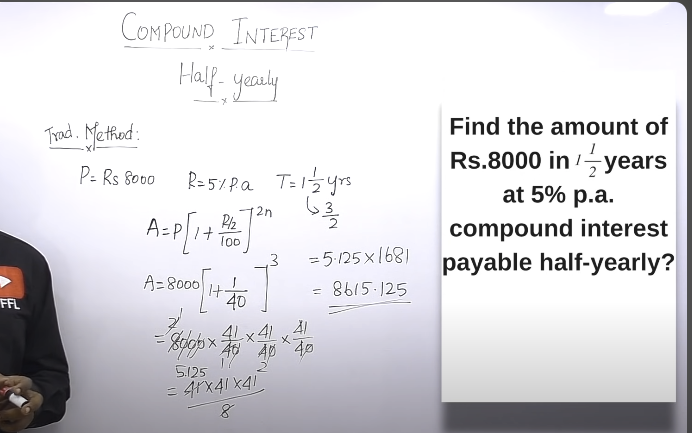 COMPOUND INTEREST
Half-yearly
Trad. Method:
P= Rs 8000 R=5% P.a T=1 1/2 yrs
↳ 3/2
A=P[1+ (R/2)/100]^2n
A=8000[1+ 1/40]^3
= 8000 × 41/40 × 41/40 × 41/40
2 1
1 2
5.125
= 41×41×41/8
=5.125×1681
= 8615.125
FFL
Find the amount of
Rs.8000 in 1 1/2 years
at 5% p.a.
compound interest
payable half-yearly?